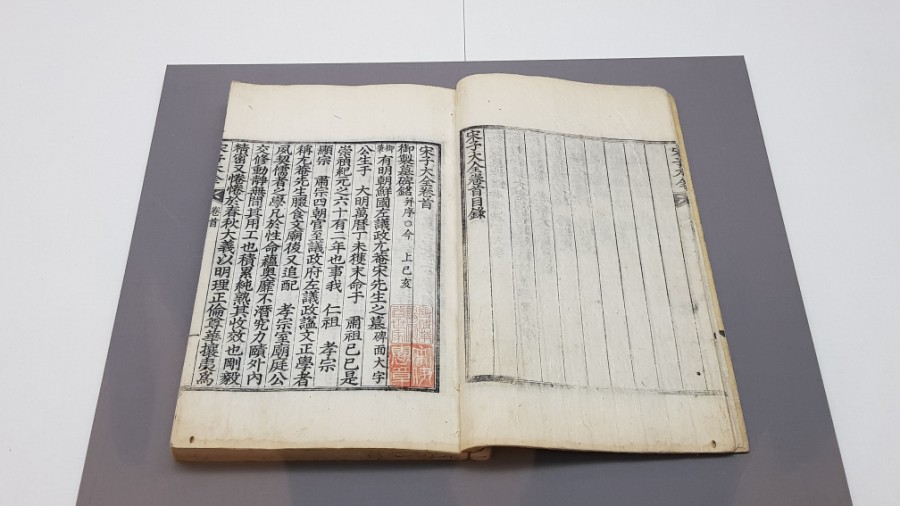 宋子大全
宋子大全卷首目錄
宋子大全卷首
御製墓碑銘 并序○今 上己亥
御筆 有明朝鮮國左議政尤菴宋先生之墓碑面大字
公生于 大明萬曆丁未獲末命于 肅祖己巳是
崇禎紀元之六十有二年也事我 仁祖 孝宗
顯宗 肅宗四朝官至議政府左議政諡文正學者
稱尤菴先生腏食文廟後又追配 孝宗室廟庭公
夙契儒者之學凡於性命蘊奧靡不潛究力賾外內
交修動靜無間其用工也積累純熟其收效也剛毅
精密又惓惓於春秋大義以明理正倫尊華攘夷爲
宋子大全 卷首